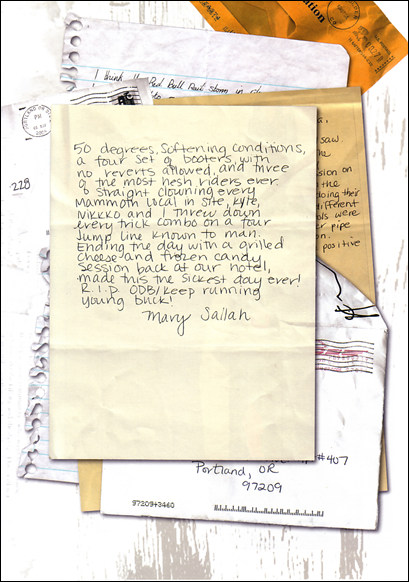 ition
PM
2005
I think the Red Bull Rail Storm in
228
50 degrees, Softening conditions,
a four set of booters, with
no reverts allowed, and three
of the most hesh riders ever
Straight clowning every
Mammoth local in site, Kyle,
Nikkko and I threw down
every trick combo on a four
Jump line known to man.
Ending the day with a grilled
cheese and frozen candy
session back at our hotel,
made this the sickest day ever!
R.I.P. ODB/keep running
young buck!
Mary Sailah
saw
the
ssion on
the
doing their
different
ols were
er pipe
positive
#407
Portland, OR
97209
97209+3460